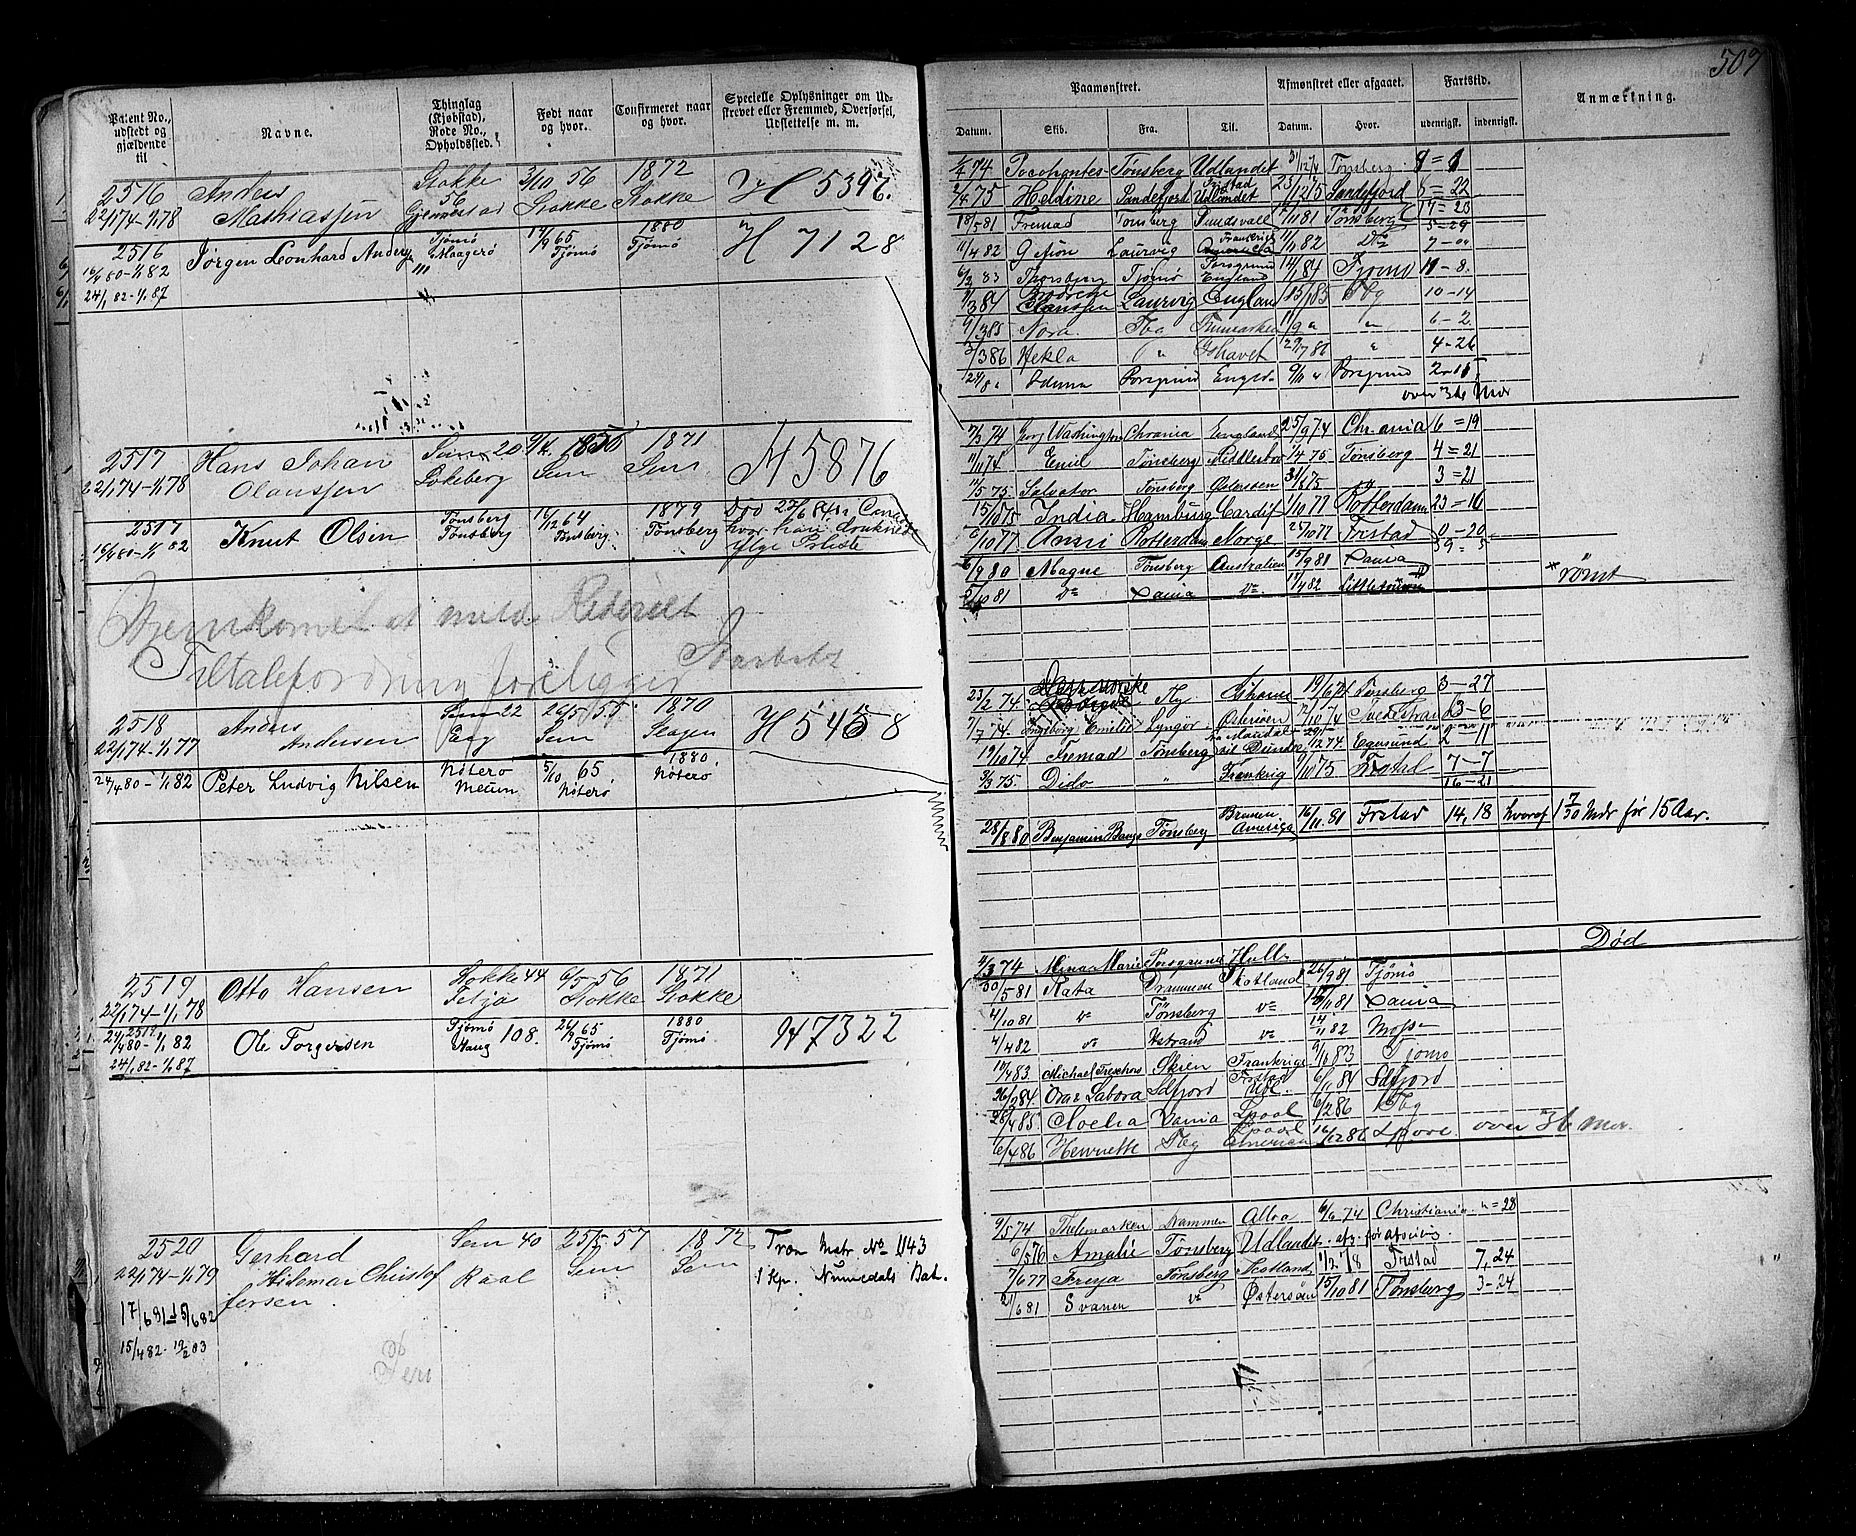 507
Patent No., udstedt og gjældende til
Navne.
Thinglag (Kjøbstad), Rode No., Opholdssted.
Født naar og hvor.
Confirmeret naar og hvor.
Specielle Oplysninger om Udskrevet eller Fremmed, Overførsel, Udslettelse m. m.
2516 Anders Stokke 3/10 56 1872 H 5396
22/1 74-1/1 78 Mathiassen 56 Gjennestad Stokke Stokke
2516 Jørgen Leonhard Anders Tjømø Maagerø 111 17/9 65 Tjømø 1880 Tjømø H 7128
16/4 80-1/1 82
24/1 82-1/1 87
2517 Hans Johan Sem 20 9/4 1856 1871 H 5876
22/1 74-1/1 78 Olaussen Lokeberg Sem Sem
2517 Knut Olsen Tønsberg 14/12 64 1879
15/4 80-1/1 82 Tønsberg Tønsberg Tønsberg hvor han druknede
Hjemkomst at melde Rederiet
Tiltalefordring foreligger
2518 Anders Sem 22 26/5 55 1870 H 5458
22/1 74-1/1 77 Andersen Sem Slagen
24/4 80-1/1 82 Peter Ludvig Nilsen Nøterø 5/10 65 1880
Meum Nøterø Nøterø
2519 Otto Hansen Stokke 44 6/5 56 1871
22/1 74-1/1 78 Feljø Stokke Stokke
2519 Ole Torgersen Tjømø Haug 108. 26/2 65 Tjømø 1880 Tjømø H 7322
24/4 80-1/1 82
24/1 82-1/1 87
2520 Gerhard Sem 40 25/5 57 1872 Træn Matr No 1143
22/1 74-1/1 79 Hilemar Christof Raal Sem Sem 1 Kp. Numedals Bat.
fersen
17/6 81-15/6 82
15/4 82-19/2 83
Paamønstret.
Afmønstret eller afgaaet.
Fartstid.
Anmærkning.
Datum. Skib. Fra. Til. Datum. Hvor. udenrigsk. indenrigsk.
74 Pocohontes Tønsberg Udlandet 31/12 74 Tønsberg 8=1
2/4 75 Heldine Sandefjord Udlandet 23/12 75 Sandefjord 5=22
18/5 81 Fremad Tønsberg Sundsvall 7/11 81 Tønsberg 5=29
11/4 82 Gefion Laurvig Frankrig 11/11 82 Do 7-
6/2 83 Thorsbjerg Tjømø England 14/1 84 Tjømø 11-8.
3 84 Brødrene Claussen Laurvig England 15/1 85 Tbg 10-14
9/3 85 Nora Tbg 11/9 " " 6-2
3/3 86 Hekla " Ishavet 29/7 86 " 4-26
24/8 " Iduna Porsgrund Engld. 9/10 " Porsgrund 2.15
over 36 Mdr
7/3 74 Georg Washington Chrania England 25/9 74 Chrania 6=19
11/11 74 Emil Tønsberg Middlesbro 1/4 75 Tønsberg 4=21
11/5 75 Salvator Tønsberg Østersøen 31/8 75 3=21
15/10 75 India Hamburg Cardif 1/10 77 Rotterdam 23=16
6/10 77 Anni Rotterdam Norge 25/10 77 Frstad 0-20
6/9 80 Magne Tønsberg Australien 15/9 81 Xania
2/10 81 Do Xania Do 17/4 82 * rømt
23/2 74 19/6 74 Tønsberg 3-27
7/7 74 Ingeborg Emilie Lyngør Østersøen 7/10 74 Tvedestrand 3-6
19/10 74 Fremad Tønsberg 12 74 Egersund 2-11
3/3 75 Dido " Frankrig 9/10 75 Frstad 7-7
16-21
28/8 80 Benjamin Bangs Tønsberg Bremen Amerika 16/11 81 Frstad 14,18 hvoraf 1 7/30 Mdr før 15 Aar.
Død
4/3 74 Mina Marie Porsgrund Hull
30/5 81 Kata Drammen Skotland 26/9 81 Tjømø
4/10 81 Do Tønsberg Do 15/11 81 Xania
4/4 82 Do Do 14/11 82 Moss
10/4 83. Michael Treschow Skien Frankrige 9/11 83 Tjømø
26/2 84. Ora & Labora Sdfjord 6/1 84 Sdfjord
26/4 85. Noelia Xania Lpool 6/2 86 Tbg
6/4 86 Henriette Tbg America 16/12 86 over 36 Mdr.
9/5 74 Thelemarken Drammen Alloa 6/6 74 Christiania. "=28
6/5 76 Amalie Tønsberg Udlandet. afg. før afseiling
7/6 77 Freya Tønsberg Skotland 11/2 78 Frstad 7,24
21/6 81 Svanen Do Østersøen 15/10 81 Tønsberg 3-24